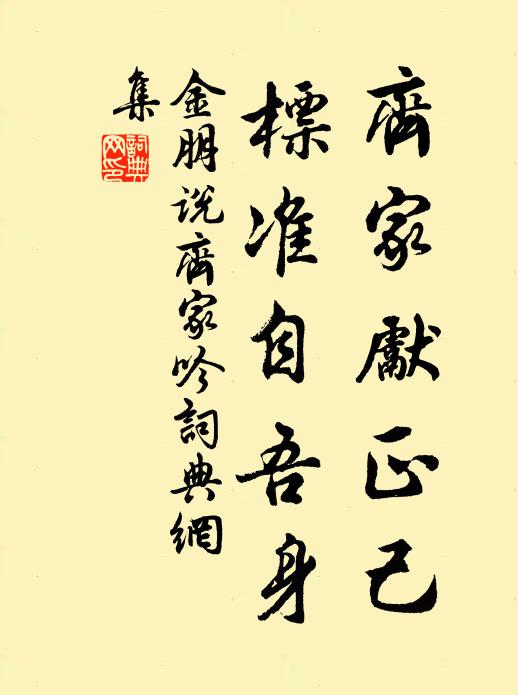 齊家獻正己
標准自吾身
金朋说齊家吟詞典網
集
詞典
网印